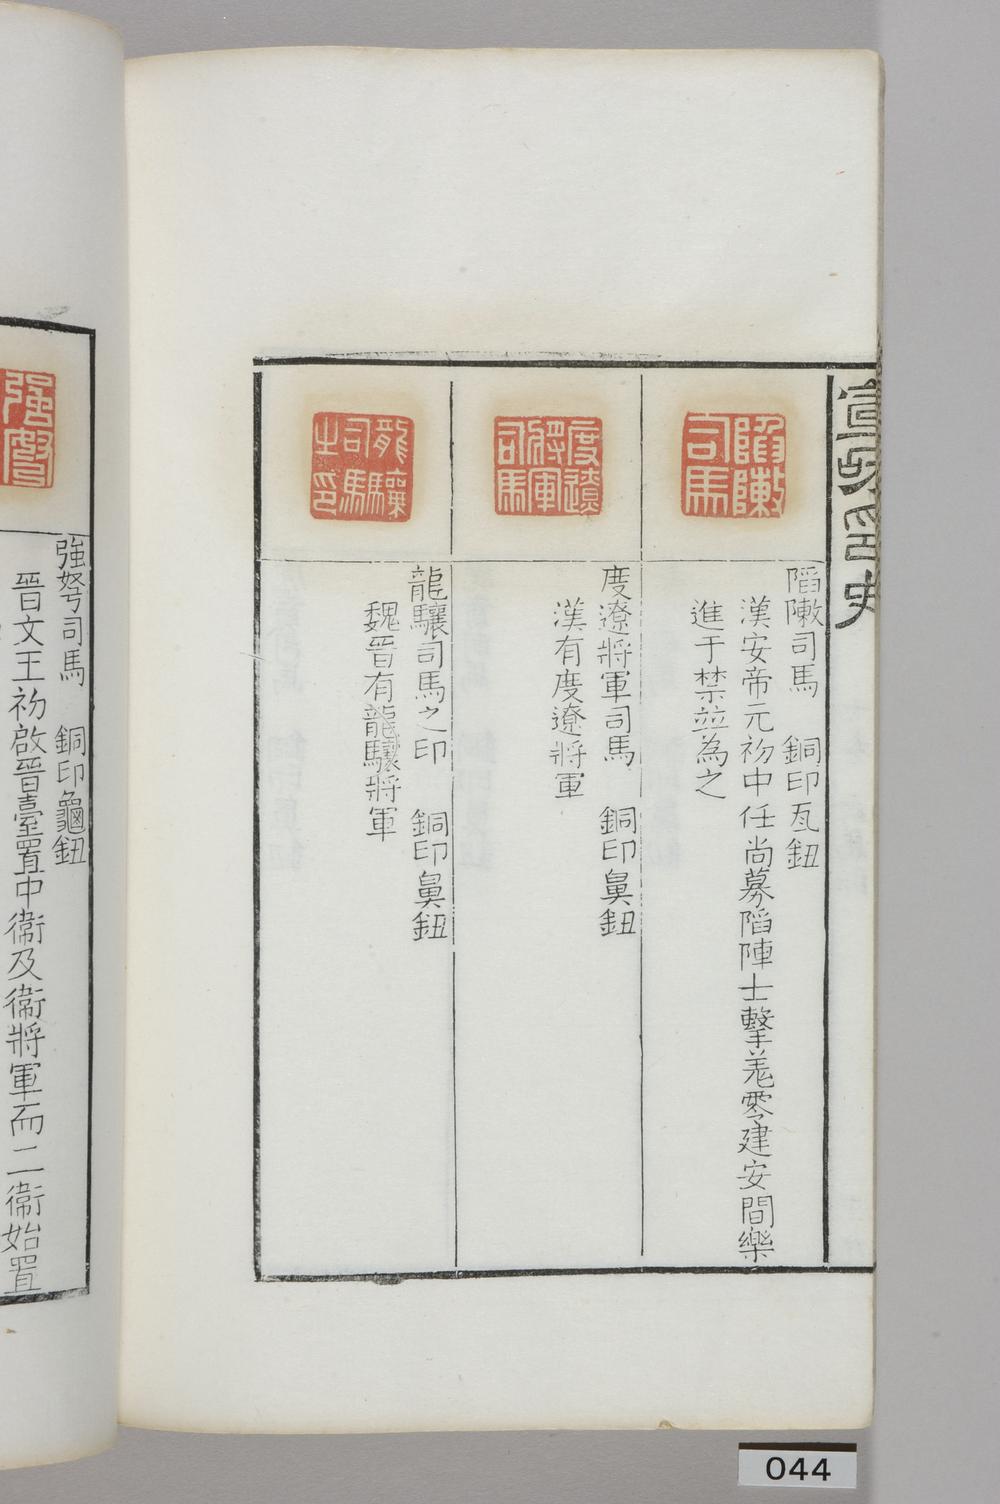 宣和印史
陷陳司馬
陷敶司馬　銅印瓦鈕
漢安帝元初中任尚募陷陣士擊羌零建安間樂
進于禁並為之
度遼將軍司馬
度遼將軍司馬　銅印鼻鈕
漢有度遼將軍
龍驤司馬之印
龍驤司馬之印　銅印鼻鈕
魏晉有龍驤將軍
强弩
強弩司馬　銅印龜鈕
晉文王初啟晉臺置中衞及衞將軍而二衞始置
044